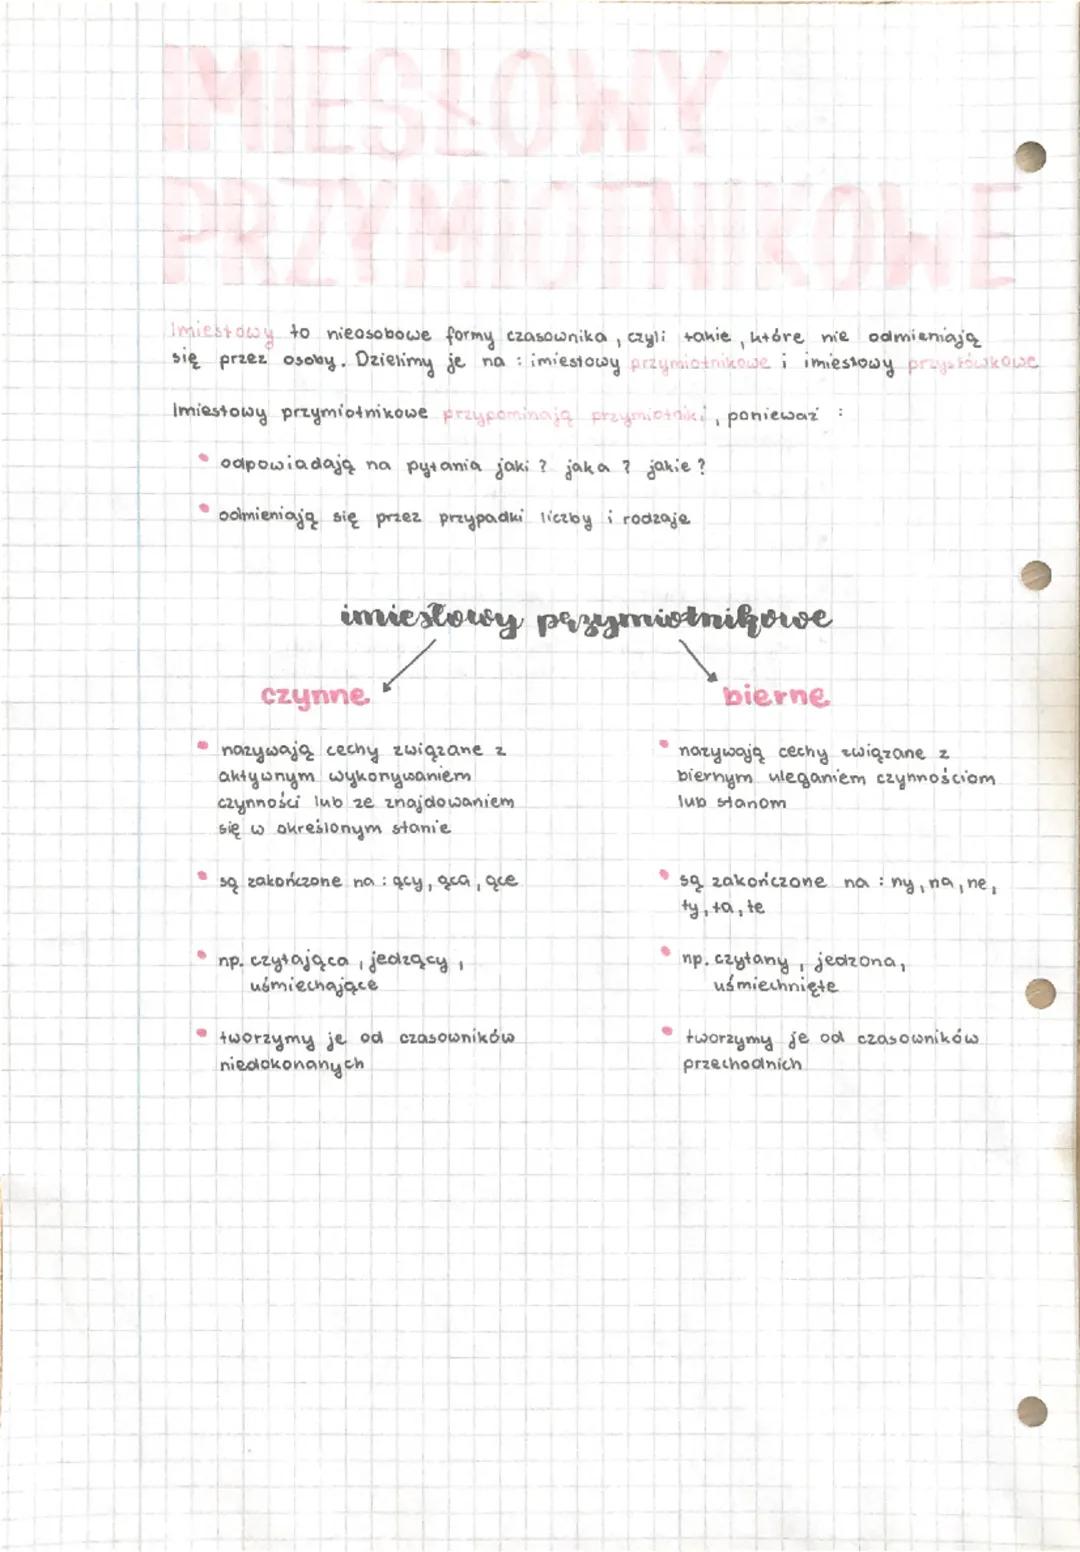 IMIESŁOWY
PRZYMIOTNIKOWE
Imiesłowy to nieosobowe formy czasownika, czyli takie, które nie odmieniają
się przez osoby. Dzielimy je na: imiesłowy przymiotnikowe i imiesłowy przysłówkowe
Imiesłowy przymiotnikowe przypominają przymiotniki, ponieważ:
• odpowiadają na pytania jaki? jaka? jakie?
• odmieniają się przez przypadki liczby i rodzaje
imiesłowy przymiotnikowe
czynne
• nazywają cechy związane z
aktywnym wykonywaniem
czynności lub ze znajdowaniem
się w określonym stanie
• są zakończone na: ący, ąca, ące
• np. czytająca, jedzący,
uśmiechające
• tworzymy je od czasowników
niedokonanych
bierne
• nazywają cechy związane z
biernym uleganiem czynnościom
lub stanom
• są zakończone na: ny, na, ne,
ty, ta, te
• np. czytany, jedzona,
uśmiechnięte
• tworzymy je od czasowników
przechodnich